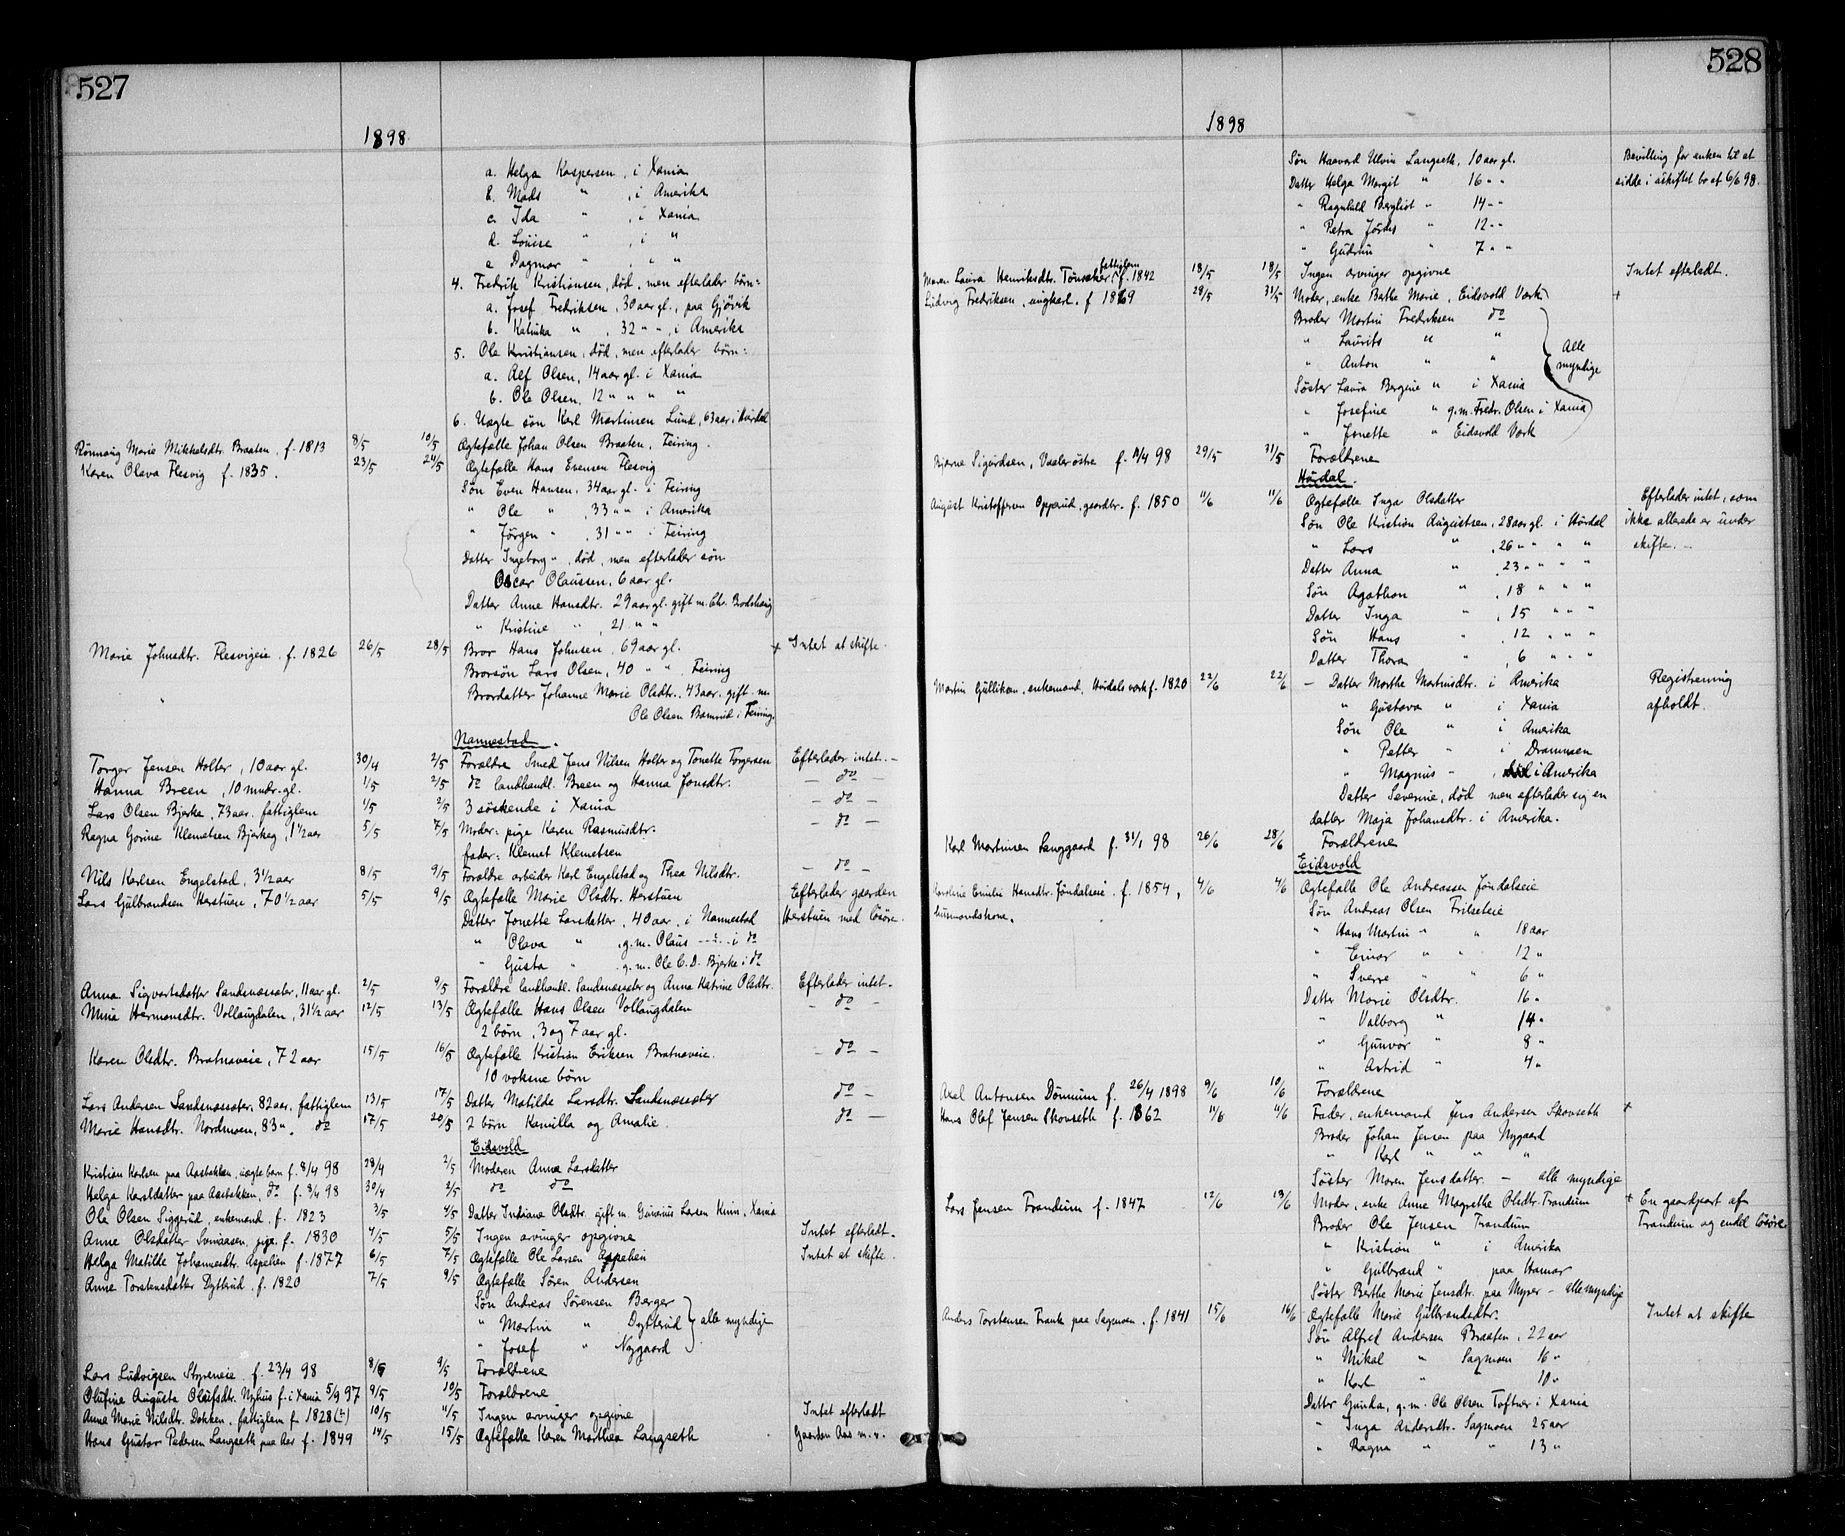 527
1898
a. Helga Kaspersen, i Xania
b. Mads " , i Amerika
c. Ida " , i Xania
d. Louise " , i "
e Dagmar " , " "
4. Fredrik Kristiansen, død, men efterlader børn:
a. Josef Fredriksen, 30 aar gl., paa Gjøvik
b. Katinka " , 32 " " , i Amerika
5. Ole Kristiansen, død, men efterlader børn:
a. Alf Olsen, 14 aar gl. i Xania
b. Ole Olsen, 12 " " " "
6. Uægte søn Karl Martinsen Lund, 63 aar, i Hurdal
Rønnaug Marie Mikkelsdtr. Braaten, f. 1813 8/5 10/5 Ægtefælle Johan Olsen Braaten, Feiring.
Karen Olava Flesvig f. 1835. 23/5 24/5 Ægtefælle Hans Evensen Flesvig
Søn Even Hansen, 34 aar gl. i Feiring
" Ole " , 33 " " i Amerika
" Jørgen " , 31 " " i Feiring
Datter Ingeborg ", død, men efterlader søn
Oscar Olaussen, 6 aar gl.
Datter Anne Hansdtr. 29 aar gl. gift m. Chr. Brodshaug
" Kristine " , 21 " "
Marie Johnsdtr. Flesvigeie, f. 1826 26/5 28/5 Bror Hans Johnsen, 69 aar gl. + Intet at skifte.
Brorsøn Lars Olsen, 40 " " Feiring
Brordatter Johanne Marie Olsdtr., 43 aar. gift m
Ole Olsen Bamrud i Feiring.
Nannestad.
Torger Jensen Holter, 10 aar gl. 30/4 2/5 Forældre Smed Jens Nilsen Holter og Tonette Torgersen Efterlader intet. -
Hanna Breen, 10 mndr. gl. 1/5 2/5 do landhandl. Breen og Hanna Jonsdtr. - do -
Lars Olsen Bjerke, 73 aar. fattiglem 1/5 2/5 3 søskende i Xania - do -
Ragna Gorine Klemetsen Bjerkeg, 1 1/2 aar 5/5 7/5 Moder: pige Karen Rasmusdtr. - do -
fader: Klemet Klemetsen
Nils Karlsen Engelstad, 3 1/2 aar 8/5 9/5 Forældre arbeider Karl Engelstad og Thea Nilsdtr. - do -
Lars Gulbrandsen Herstuen, 70 1/2 aar 5/5 9/5 Ægtefælle Marie Olsdtr. Herstuen Efterlader gaarden
Datter Jonette Larsdatter, 40 aar, i Nannestad Herstuen med løsøre.
" Olava " , g. m. Olaus - - - i do
" Gusta " , g. m. Ole C. D. Bjerke i do
Anna Sigvartsdatter Sandsnæssæter, 11 aar gl. 2/5 9/5 Forældre landhandl. Sandsnæssæter og Anna Katrine Olsdtr. Efterlader intet.
Mina Hermansdtr. Vollaugdalen, 31 1/2 aar 12/5 13/5 Ægtefælle Hans Olsen Vollaugdalen - do -
2 børn, 3 og 7 aar gl.
Karen Olsdtr. Bratnaveie, 72 aar 15/5 16/5 Ægtefælle Kristian Eriksen Bratnaveie. - do -
10 voksne børn
Lars Andersen Sandsnæssæter, 82 aar, fattiglem 13/5 17/5 Datter Matilde Larsdtr. Sandsnæssæter do -
Marie Hansdtr. Nordmoen, 83 ", do 17/5 20/5 2 børn Kamilla og Amalie. do -
Eidsvold
Kristian Karlsen paa Aastækken, uægte barn f. 8/4 98 28/4 2/5 Moderen Anna Larsdatter
Helga Karsldatter paa Aastækken, do f. 8/4 98 30/4 2/5 do do
Ole Olsen Siggerud, enkemand, f. 1823 3/5 4/5 Datter Indiane Olsdtr. gift m. Gunerius Larsen Kinn, Xania
Anne Olsdatter Svinaasen, pige f. 1830 4/5 5/5 Ingen arvinger opgivne Intet efterladt.
Helga Matilde Johannesdtr. Aspelien f. 1877 6/5 7/5 Ægtefælle Ole Larsen Aspelien Intet at skifte.
Anne Torstensdatter Dytterud, f. 1820 7/5 9/5 Ægtefælle Søren Andersen
Søn Andreas Sørensen Berger
" Martin " Dytterud } alle myndige
" Josef " Nygaard
Lars Ludvigsen Styreneie. f. 23/4 98 8/5 9/5 Forældrene
Olufine Augusta Olufsdtr. Nyhus f. i Xania 5/9 97 9/5 10/5 Forældrene
Anne Marie Nilsdtr. Dokken, fattiglem f. 1828 10/5 11/5 Ingen arvinger opgivne Intet efterladt
Hans Gustav Pedersen Langseth paa Aas f. 1849 14/5 15/5 Ægtefælle Karen Marthea Langseth Gaarden Aas m. v.
528
1898
Søn Haavard Ulvin Langseth, 10 aar gl. Bevilling for enken til at
Datter Helga Margit " 16 " " sidde i uskiftet bo af 6/6 98.
" Ragnhild Bergliot " 14 " "
" Petra Jørdis " 12 " "
" Gudrun " 7 " "
Maren Laura Henriksdtr. Tønsaker, fattiglem f. 1842 18/5 18/5 Ingen arvinger opgivne Intet efterladt.
Ludvig Fredriksen, ungkarl, f 1869 28/5 31/5 Moder, enke Bathe Marie, Eidsvold Værk +
Broder Martin Fredriksen do
" Laurits " "
" Anton " " } Alle myndige
Søster Laura Bergine " i Xania
" Josefine " g. m. Fredr. Olsen i Xania
" Jonette " Eidsvold Værk
Bjarne Sigurdsen, Vaaler østre f. 11/4 98 29/5 31/5 Forældrene
Hurdal.
August Kristoffersen Opperud, gaardbr. f. 1850 11/6 11/6 Ægtefælle Inga Olsdatter Efterlader intet, som
Søn Ole Kristian Augustsen, 28 aar gl. i Hurdal ikke allerede er under
" Lars " , 26 " " " " skifte. -
Datter Anna " , 23 " " " "
Søn Agathon " , 18 " " " "
Datter Inga " , 15 " " "
Søn Hans " , 12 " " "
Datter Thora " , 6 " " "
Martin Gulliksen, enkemand, Hurdals værk f. 1820 22/6 22/6 - Datter Marthe Martinsdtr. i Amerika Registrering
" Gustava " i Xania afholdt.
Søn Ole " i Amerika
" Petter " i Drammen
" Magnus " , i Amerika
Datter Severine, død men efterlader sig en
datter Maja Johansdtr. i Amerika.
Karl Martinsen Langgaard f. 31/1 98 26/6 28/6 Forældrene
Eidsvold
Karoline Emilie Hansdtr. Jøndalseie. f. 1854, 4/6 4/6 Ægtefælle Ole Andreassen Jøndalseie
husmandskone. Søn Andreas Olsen Frilseteie
" Hans Martin " " 18 aar
" Einar " " 12 "
" Sverre " " 6 "
Datter Marie Olsdtr. 16 "
" Valborg " 14 "
" Gunvor " 8 "
" Astrid " 4 "
Axel Antonsen Dønnum f. 26/4 1898 9/6 10/6 Forældrene
Hans Olaf Jensen Skovseth f. 1862 11/6 11/6 Fader, enkemand Jens Andersen Skovseth +
Broder Johan Jensen paa Nygaard
" Karl " " "
Søster Maren Jensdatter. - alle myndige
Lars Jensen Trandum f. 1847 12/6 13/6 Moder, enke Anne Magrethe Olsdtr. Trandum + En gaardpart af
Broder Ole Jensen Trandum Trandum og endel løsøre
" Kristian " i Amerika
" Gulbrand " paa Hamar
Søster Berthe Marie Jensdtr. paa Myrer - alle myndige
Anders Torstensen Frank paa Sagmoen. f. 1841 15/6 16/6 Ægtefælle Marie Gulbrandsdtr. Intet at skifte
Søn Alfred Andersen Braaten, 22 aar
" Mikal " Sagmoen 16 "
" Karl " " 10 "
Datter Gunda, g. m. Ole Olsen Toftner i Xania
" Inga Andersdtr. Sagmoen 25 aar
" Ragna " " 13 "